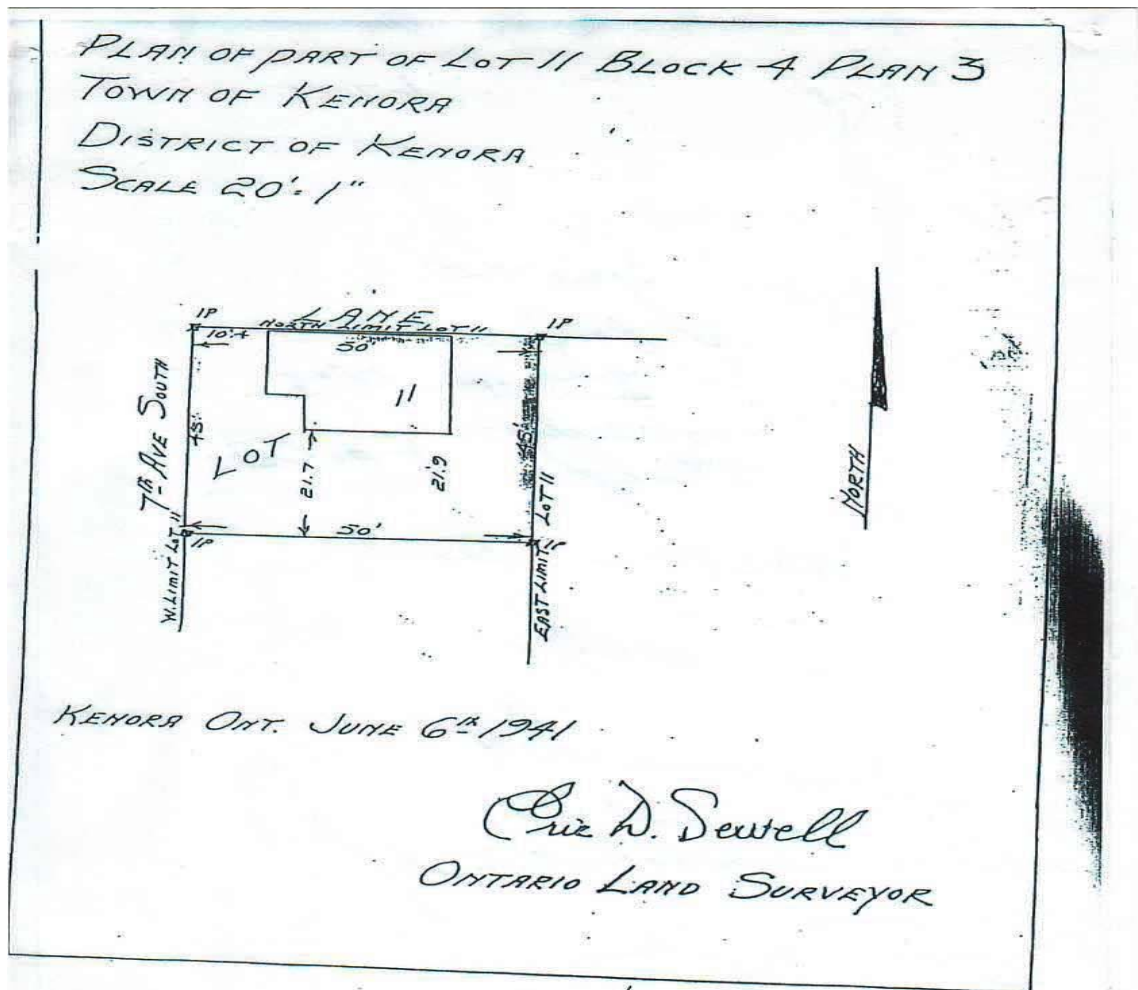 PLAN OF PART OF LOT 11 BLOCK 4 PLAN 3
TOWN OF KENORA
DISTRICT OF KENORA
SCALE 20'= 1"
IP
LANE
IP
10'.4
NORTH LIMIT LOT 11
50'
7th AVE SOUTH
45'
LOT
11
45'
21.7
21.9
W. LIMIT LOT 11
IP
50'
IP
EAST LIMIT LOT 11
NORTH
KENORA ONT. JUNE 6th 1941
Eric D. Sewell
ONTARIO LAND SURVEYOR